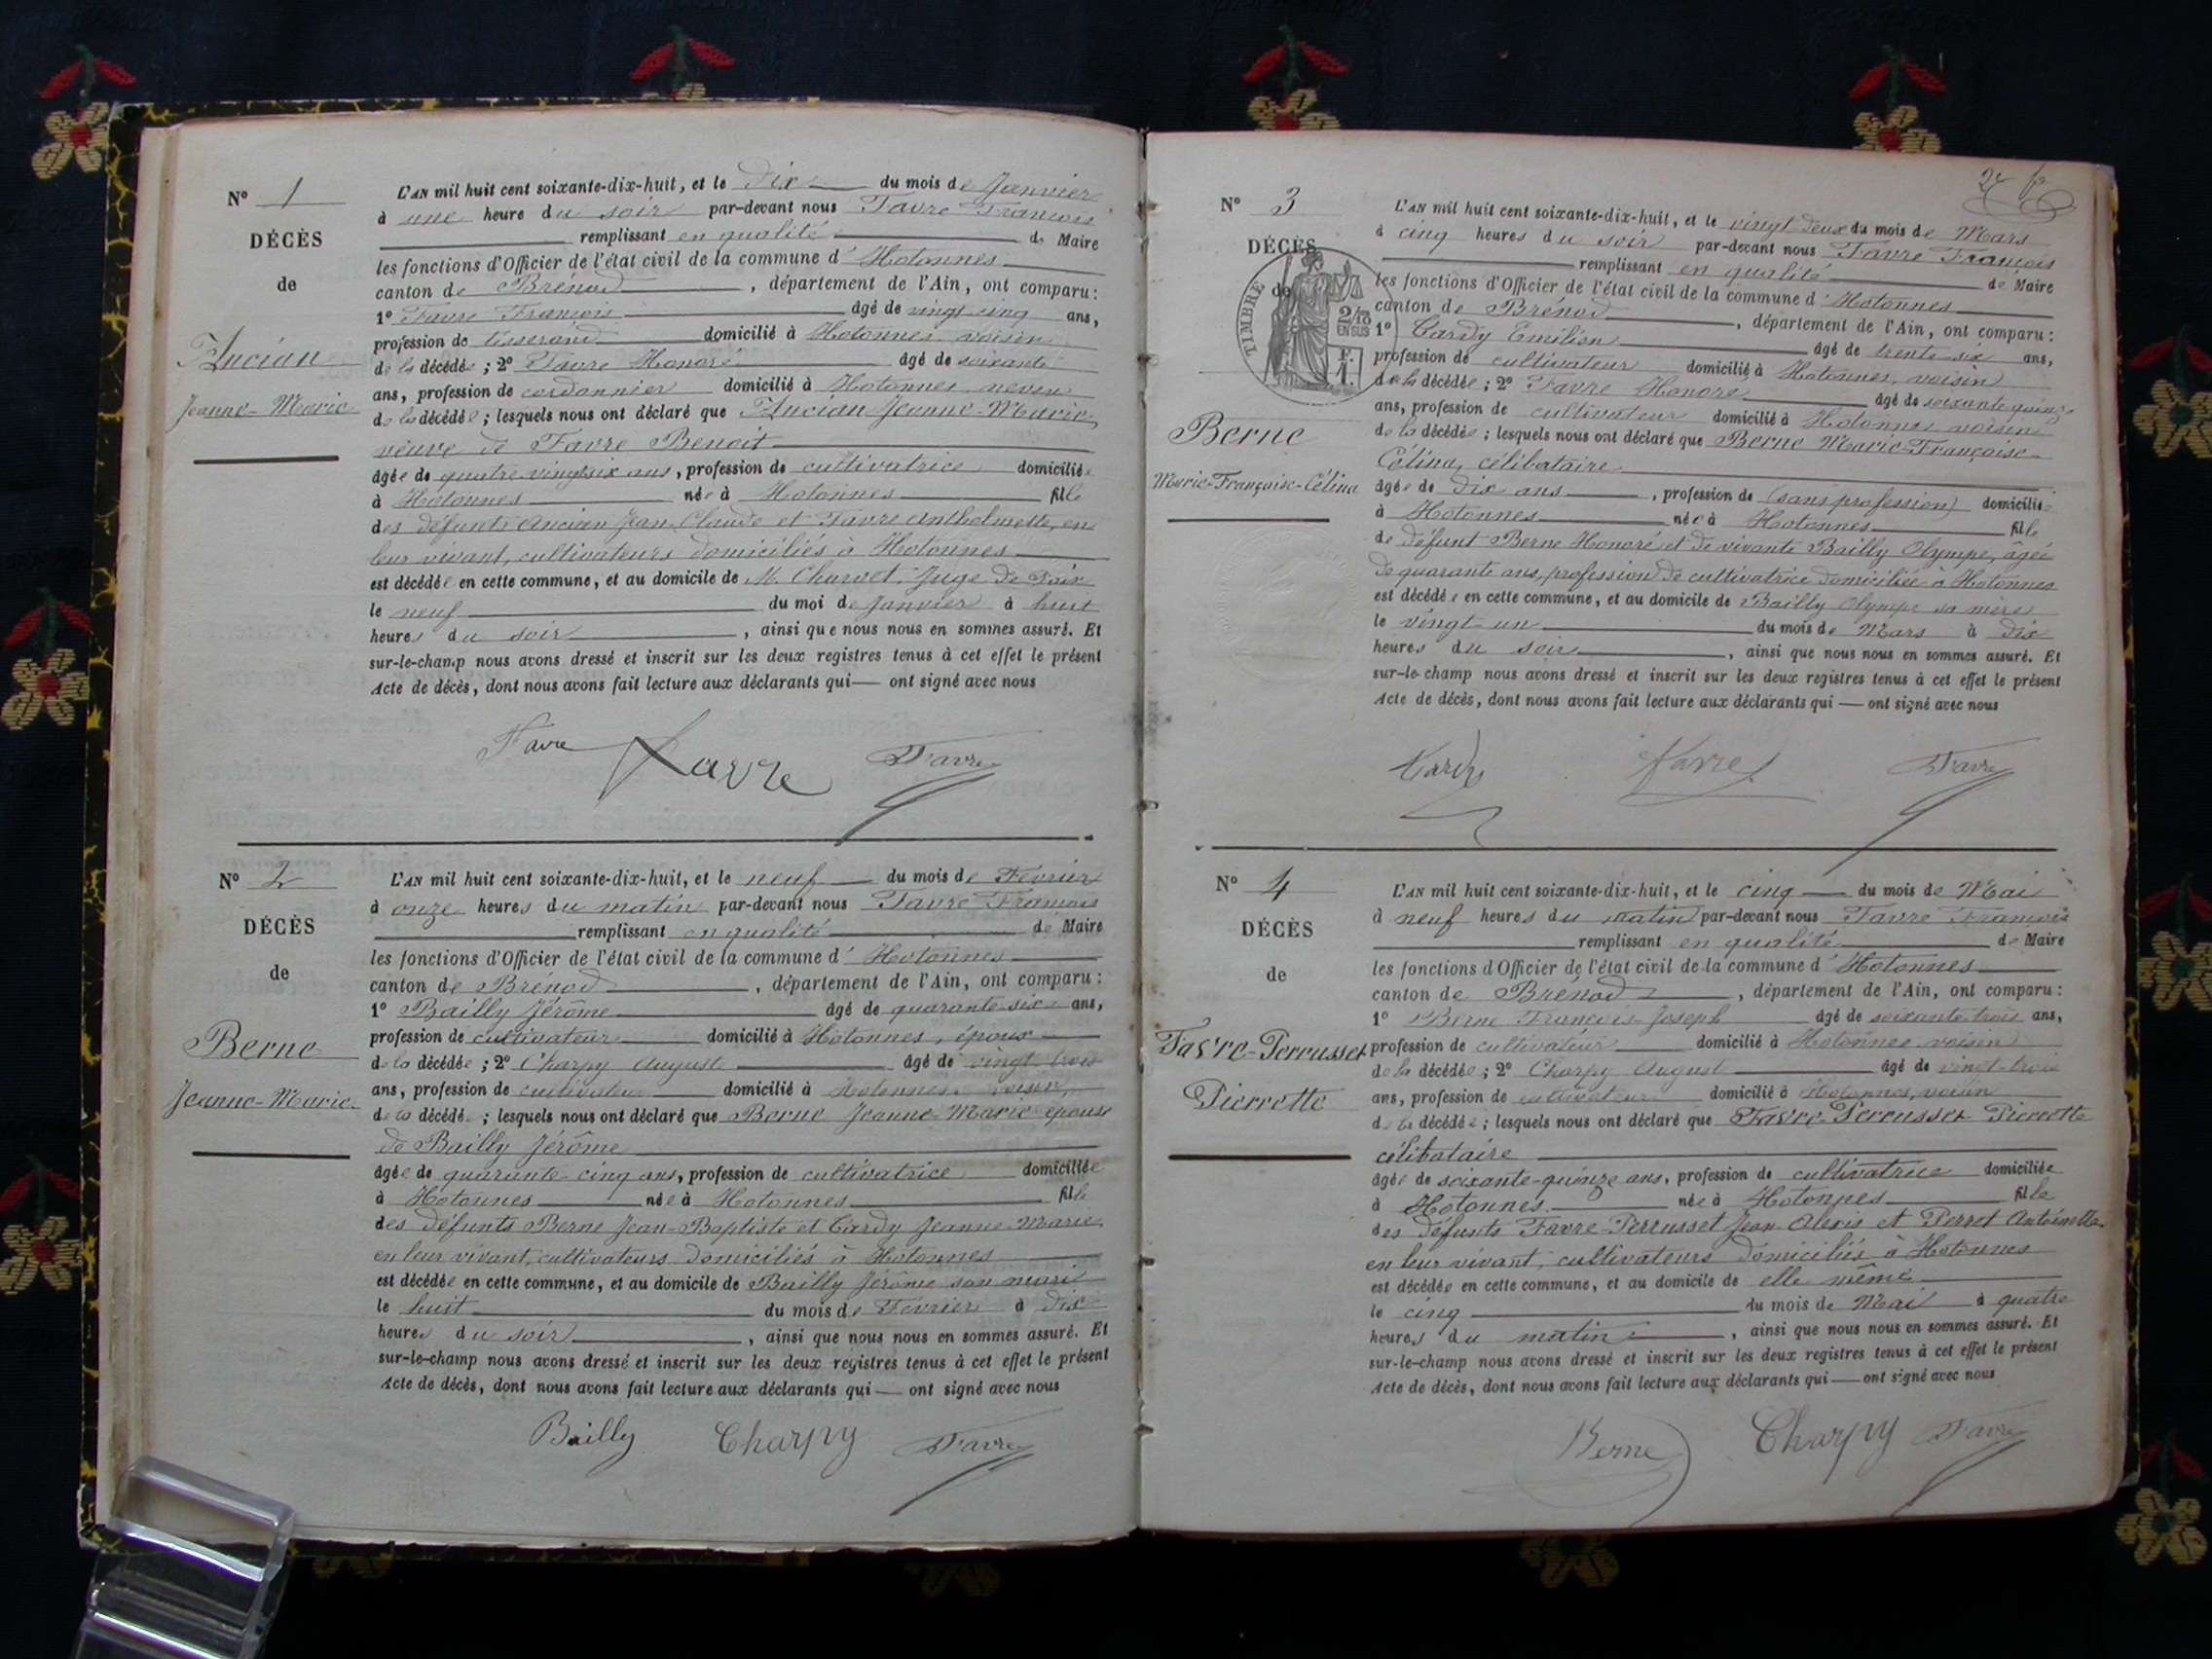 N° 1
DÉCÈS
de
Ancian
Jeanne-Marie
L'AN mil huit cent soixante-dix-huit, et le dix du mois de Janvier
à une heure du soir par-devant nous Favre François
remplissant en qualité de Maire
les fonctions d'Officier de l'état civil de la commune d'Hotonnes
canton de Brénod, département de l'Ain, ont comparu :
1° Favre François âgé de vingt cinq ans,
profession de tisserand domicilié à Hotonnes, voisin
de la décédée ; 2° Favre Honoré âgé de soixante
ans, profession de cordonnier domicilié à Hotonnes neveu
de la décédée ; lesquels nous ont déclaré que Ancian Jeanne-Marie,
veuve de Favre Benoit
âgée de quatre vingt six ans, profession de cultivatrice domiciliée
à Hotonnes née à Hotonnes fille
des défunts Ancian Jean-Claude et Favre Anthelmette, en
leur vivant, cultivateurs domiciliés à Hotonnes
est décédée en cette commune, et au domicile de M. Charvet, Juge de Paix
le neuf du moi de Janvier à huit
heures du soir, ainsi que nous nous en sommes assuré. Et
sur-le-champ nous avons dressé et inscrit sur les deux registres tenus à cet effet le présent
Acte de décès, dont nous avons fait lecture aux déclarants qui — ont signé avec nous
Favre Favre Favre
N° 2
DÉCÈS
de
Berne
Jeanne-Marie
L'AN mil huit cent soixante-dix-huit, et le neuf du mois de Février
à onze heures du matin par-devant nous Favre François
remplissant en qualité de Maire
les fonctions d'Officier de l'état civil de la commune d'Hotonnes
canton de Brénod, département de l'Ain, ont comparu :
1° Bailly Jérôme âgé de quarante-six ans,
profession de cultivateur domicilié à Hotonnes, époux
de la décédée ; 2° Charpy August âgé de vingt trois
ans, profession de cultivateur domicilié à Hotonnes voisin,
de la décédée ; lesquels nous ont déclaré que Berne Jeanne-Marie épouse
de Bailly Jérôme
âgée de quarante-cinq ans, profession de cultivatrice domiciliée
à Hotonnes née à Hotonnes fille
des défunts Berne Jean-Baptiste et Cardy Jeanne-Marie,
en leur vivant, cultivateurs domiciliés à Hotonnes
est décédée en cette commune, et au domicile de Bailly Jérôme son mari
le huit du mois de Février à dix
heures du soir, ainsi que nous nous en sommes assuré. Et
sur-le-champ nous avons dressé et inscrit sur les deux registres tenus à cet effet le présent
Acte de décès, dont nous avons fait lecture aux déclarants qui — ont signé avec nous
Bailly Charpy Favre
2e f.
N° 3
DÉCÈS
de
TIMBRE
2/10
EN SUS
Berne
Marie-Françoise-Célina
L'AN mil huit cent soixante-dix-huit, et le vingt deux du mois de Mars
à cinq heures du soir par-devant nous Favre François
remplissant en qualité de Maire
les fonctions d'Officier de l'état civil de la commune d'Hotonnes
canton de Brénod, département de l'Ain, ont comparu :
1° Cardy Emilien âgé de trente-six ans,
profession de cultivateur domicilié à Hotonnes, voisin
de la décédée ; 2° Favre Honoré âgé de soixante quinze
ans, profession de cultivateur domicilié à Hotonnes voisin
de la décédée ; lesquels nous ont déclaré que Berne Marie-Françoise-
Célina, célibataire
âgée de dix ans, profession de (sans profession) domiciliée
à Hotonnes née à Hotonnes fille
de défunt Berne Honoré et de vivante Bailly Olympe, âgée
de quarante ans, profession de cultivatrice domiciliée à Hotonnes
est décédée en cette commune, et au domicile de Bailly Olympe sa mère
le vingt-un du mois de Mars à dix
heures du soir, ainsi que nous nous en sommes assuré. Et
sur-le-champ nous avons dressé et inscrit sur les deux registres tenus à cet effet le présent
Acte de décès, dont nous avons fait lecture aux déclarants qui — ont signé avec nous
Cardy Favre Favre
N° 4
DÉCÈS
de
Favre-Perrusset
Pierrette
L'AN mil huit cent soixante-dix-huit, et le cinq du mois de Mai
à neuf heures du matin par-devant nous Favre François
remplissant en qualité de Maire
les fonctions d'Officier de l'état civil de la commune d'Hotonnes
canton de Brénod, département de l'Ain, ont comparu :
1° Berne François-Joseph âgé de soixante-trois ans,
profession de cultivateur domicilié à Hotonnes voisin
de la décédée ; 2° Charpy August âgé de vingt-trois
ans, profession de cultivateur domicilié à Hotonnes, voisin
de la décédée ; lesquels nous ont déclaré que Favre-Perrusset Pierrette
célibataire
âgée de soixante-quinze ans, profession de cultivatrice domiciliée
à Hotonnes née à Hotonnes fille
des défunts Favre-Perrusset Jean-Alexis et Perret Antoinette
en leur vivant, cultivateurs domiciliés à Hotonnes
est décédée en cette commune, et au domicile de elle même
le cinq du mois de Mai à quatre
heures du matin, ainsi que nous nous en sommes assuré. Et
sur-le-champ nous avons dressé et inscrit sur les deux registres tenus à cet effet le présent
Acte de décès, dont nous avons fait lecture aux déclarants qui — ont signé avec nous
Berne Charpy Favre